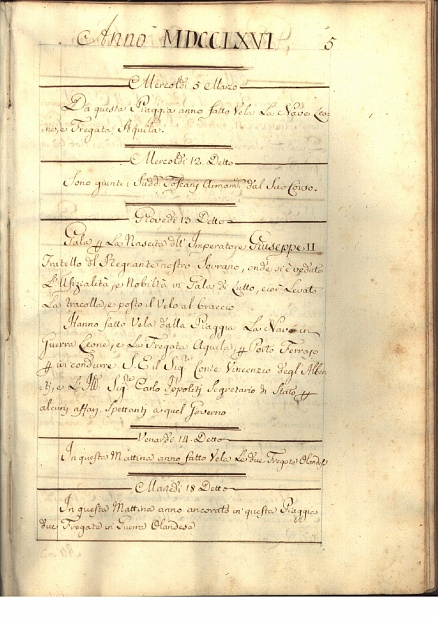 Anno MDCCLXXVI 5
Mercoldi 5 Marzo
Da questa Piaggia anno fatto Vela La Nave Leo-
ne, e Fregata Aquila.
Mercoldi 12. Detto
Sono giunti i Sudd. Toscani Armam. dal Suo Corso.
Giovedi 13. Detto
Gala La Nascita dell' Imperatore Giuseppe II
Fratello del Regnante nostro Sovrano, onde si è veduta
L'Ufizialità, e Nobiltà in Gala di Lutto, cioè Levato
La tracolla, e posto il Velo al braccio
Hanno fatto Vela dalla Piaggia La Nave in
Guerra Leone, e La Fregata Aquila, Porto Ferrajo
condurre S. E. il Sig. Conte Vincenzio degl' Alber-
ti, e L'Ill. Sig. Carlo Ippoliti Segretario di Stato,
alcuni affari Spettanti a quel Governo
Venardi 14. Detto
In questa Mattina anno fatto Vela Le due Fregate Olandesi
Martedi 18 Detto
In questa Mattina anno ancorato in questa Piaggia
due Fregate in Guerra Olandese